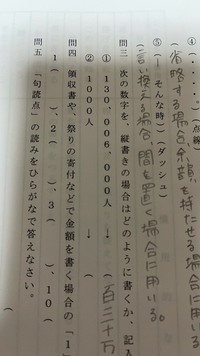 ④(・・・・(点線)
(省略する場合、余韻を持たせる場合に用いる。
⑤(― そんな時)(ダッシュ)
(言い換える場合、間を置く場合に用いる。
問三 次の数字を、縦書きの場合はどのように書くか、記入
① 130,006,000人 → (
② 1000人 → ( 百三十万
問四 領収書や、祭りの寄付などで金額を書く場合の「1」
1( )、2( )、3( )、10(
問五 「句読点」の読みをひらがなで答えなさい。
(